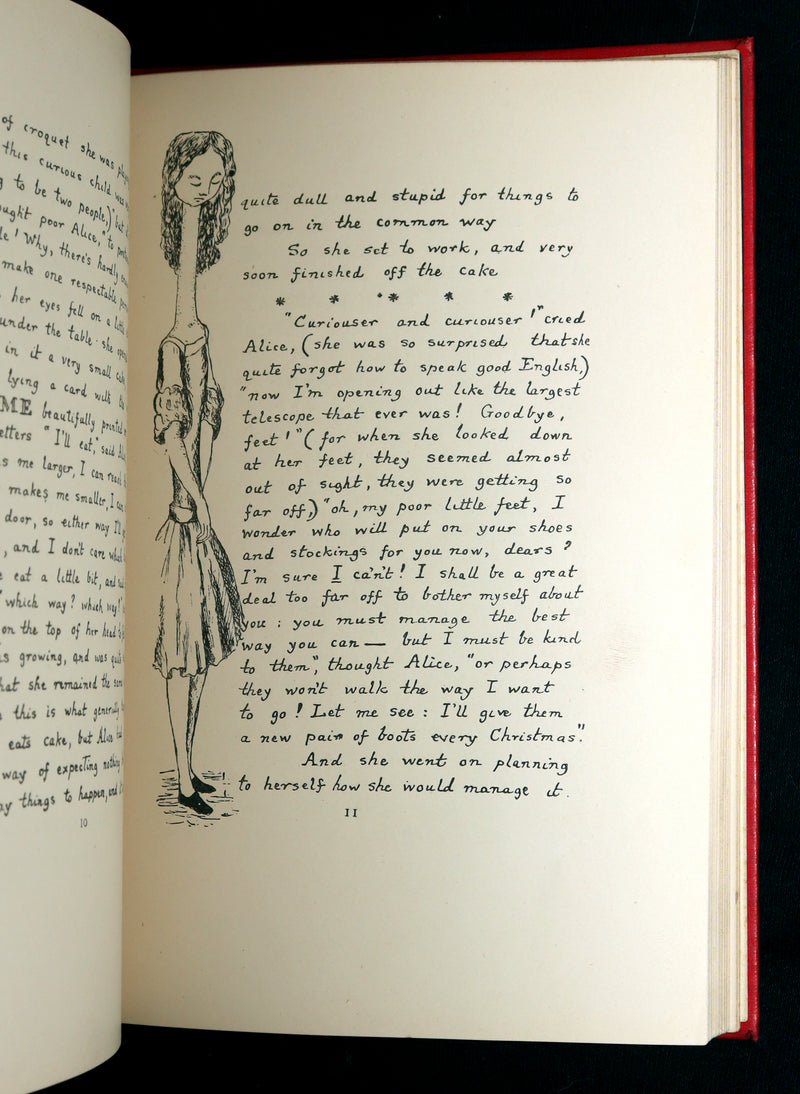 of croquet she was
this curious child was
to be two people,) but
ought poor Alice, "to
! Why, there's hardly
make one respectable
her eyes fell on a
under the table: she
in it a very small
lying a card with
ME beautifully printed
"I'll eat," said
me larger, I can
makes me smaller, I can
door, so either way I'll
, and I don't care which
eat a little bit, and
"which way? which way!"
on the top of her head
growing, and was
that she remained the same
this is what generally
eats cake, but Alice
way of expecting nothing
things to happen, and
10
quite dull and stupid for things to
go on in the common way
So she set to work, and very
soon finished off the cake
* * * * * *
"Curiouser and curiouser!" cried
Alice, (she was so surprised that she
quite forgot how to speak good English,)
"now I'm opening out like the largest
telescope that ever was! Goodbye,
feet!" (for when she looked down
at her feet, they seemed almost
out of sight, they were getting so
far off,) "oh, my poor little feet, I
wonder who will put on your shoes
and stockings for you now, dears?
I'm sure I can't! I shall be a great
deal too far off to bother myself about
you: you must manage the best
way you can — but I must be kind
to them", thought Alice, "or perhaps
they won't walk the way I want
to go! Let me see: I'll give them
a new pair of boots every Christmas".
And she went on planning
to herself how she would manage it.
11